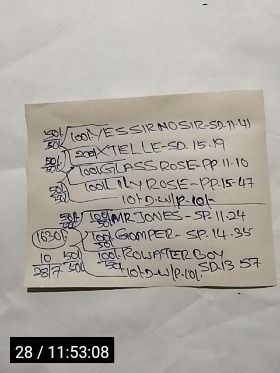 50/- 100/- YESSIRNOSIR-SD.11.41
50/- 200/- XTELLE-SD.15.19
50/- 100/- GLASS ROSE-PP.11-10
50/- 100/- LILY ROSE-PP.15-47
50/- 10/-D-W/P.10/-
50/- 100/- MR JONES - SP.11.24
1630/- 100/- GOMPER- SP.14.35
10 50/- 100/- ROWATERBOY SD.13 57
28/7 50/- 10/-D-W/P.10/-
28 / 11:53:08